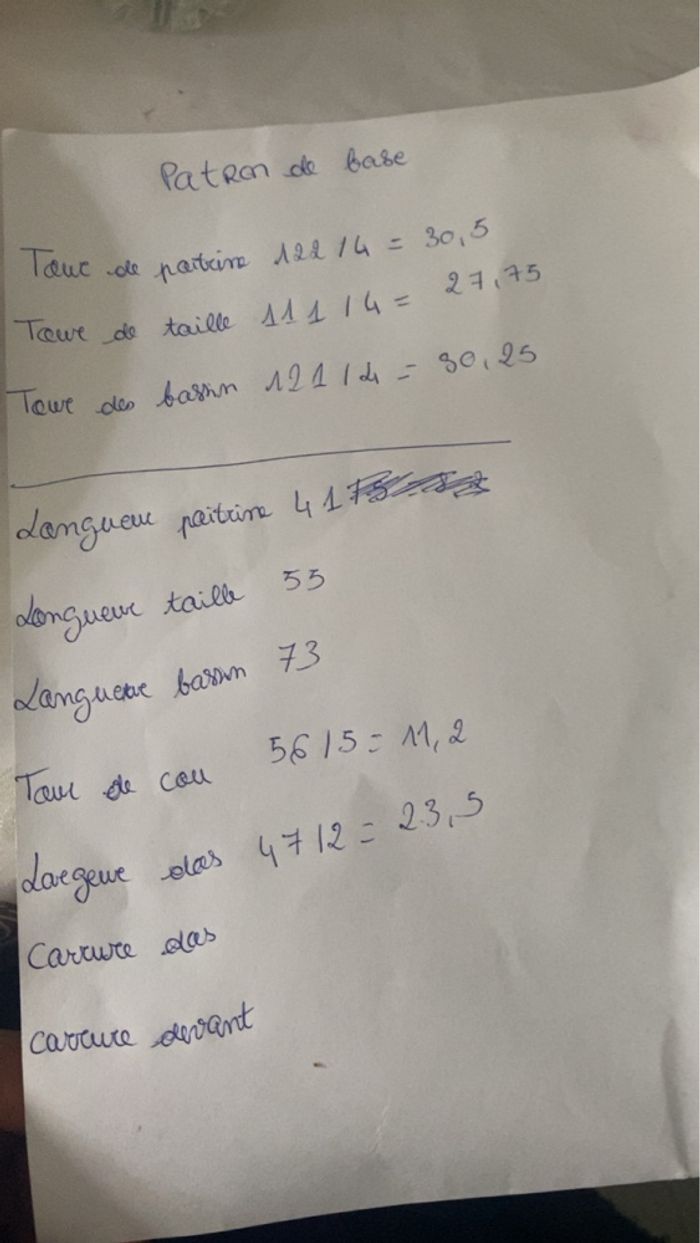 Patron de base
Tour de poitrine 122/4 = 30,5
Tour de taille 111/4 = 27,75
Tour des bassin 121/4 = 30,25
Longueur poitrine 41
Longueur taille 55
Longueur bassin 73
Tour de cou 56/5 = 11,2
Largeur dos 47/2 = 23,5
Carrure dos
Carrure devant